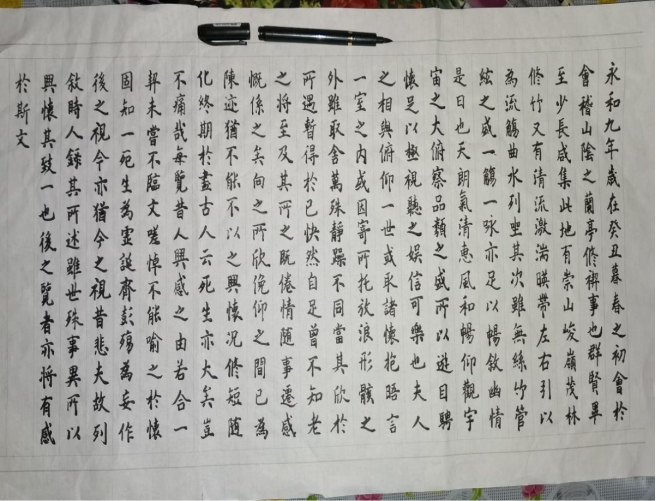 永和九年歲在癸丑暮春之初會於
會稽山陰之蘭亭修禊事也群賢畢
至少長咸集此地有崇山峻嶺茂林
修竹又有清流激湍暎帶左右引以
為流觴曲水列坐其次雖無絲竹管
絃之盛一觴一咏亦足以暢敘幽情
是日也天朗氣清惠風和暢仰觀宇
宙之大俯察品類之盛所以遊目騁
懷足以極視聽之娛信可樂也夫人
之相與俯仰一世或取諸懷抱晤言
一室之内或因寄所托放浪形骸之
外雖取舍萬殊靜躁不同當其欣於
所遇暫得於己快然自足曾不知老
之將至及其所之既倦情隨事遷感
慨係之矣向之所欣俛仰之間已為
陳迹猶不能不以之興懷況修短隨
化終期於盡古人云死生亦大矣豈
不痛哉每覽昔人興感之由若合一
契未嘗不臨文嗟悼不能喻之於懷
固知一死生為虛誕齊彭殤為妄作
後之視今亦猶今之視昔悲夫故列
敘時人錄其所述雖世殊事異所以
興懷其致一也後之覽者亦將有感
於斯文